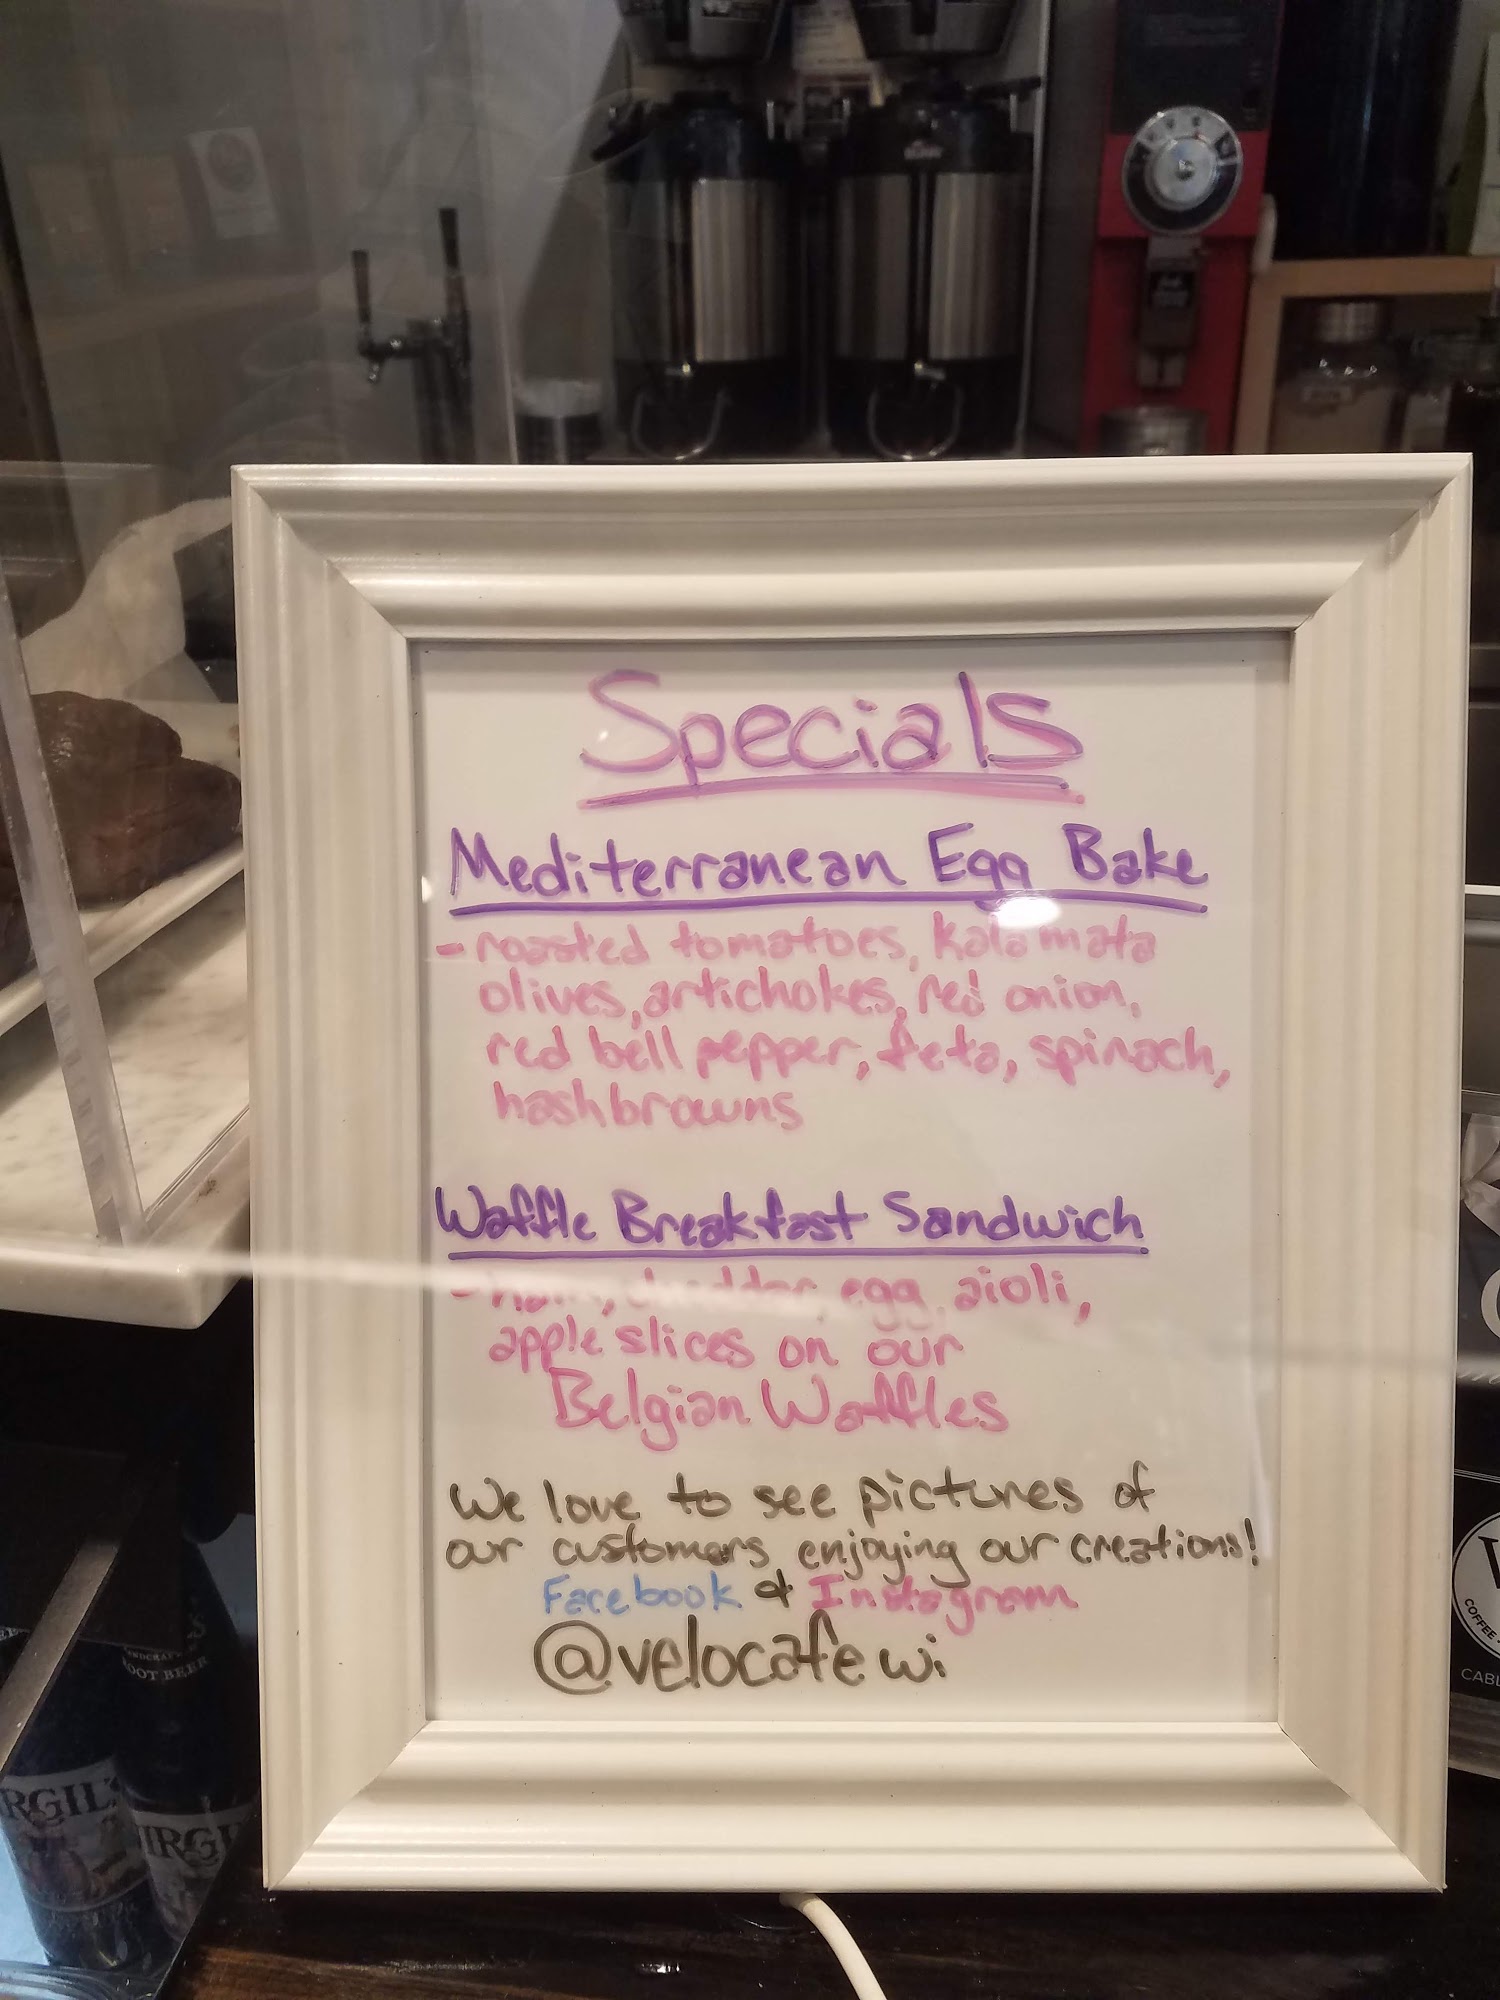 Specials
Mediterranean Egg Bake
- roasted tomatoes, Kalamata
olives, artichokes, red onion,
red bell pepper, feta, spinach,
hashbrowns
Waffle Breakfast Sandwich
- ham, cheddar, egg, aioli,
apple slices on our
Belgian Waffles
We love to see pictures of
our customers enjoying our creations!
Facebook & Instagram
@velocafewi
ROOT BEER
COFFEE